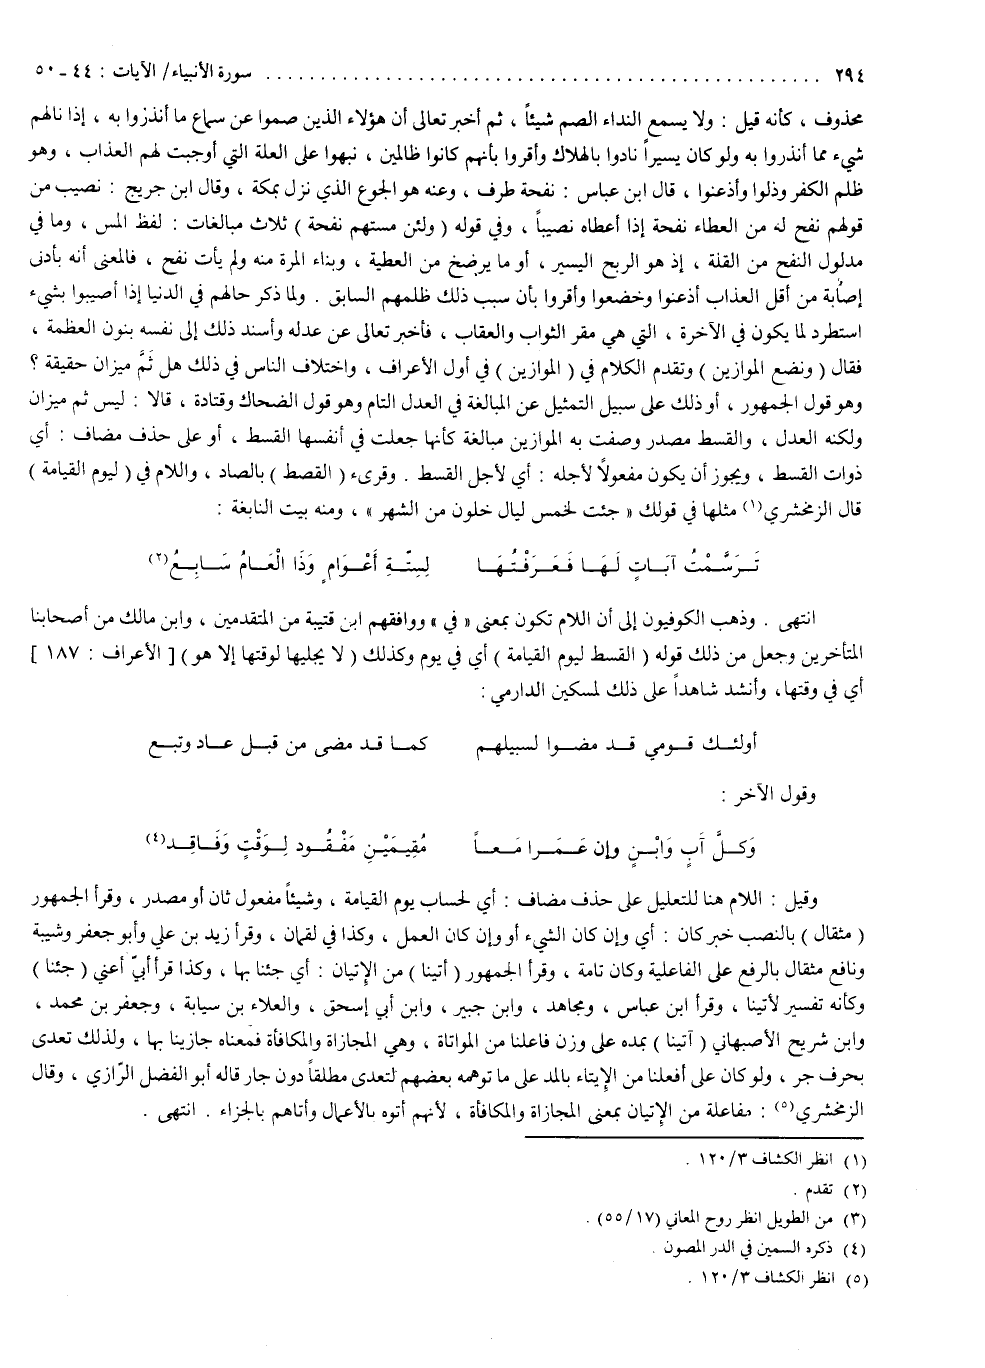 ٢٩٤ .................................................... سورة الأنبياء/ الآيات : ٤٤ - ٥٠
محذوف ، كأنه قيل : ولا يسمع النداء الصم شيئاً ، ثم أخبر تعالى أن هؤلاء الذين صموا عن سماع ما أنذروا به ، إذا نالهم
شيء مما أنذروا به ولو كان يسيراً نادوا بالهلاك وأقروا بأنهم كانوا ظالمين ، نبهوا على العلة التي أوجبت لهم العذاب ، وهو
ظلم الكفر وذلوا وأذعنوا ، قال ابن عباس : نفحة طرف ، وعنه هو الجوع الذي نزل بمكة ، وقال ابن جريج : نصيب من
قولهم نفح له من العطاء نفحة إذا أعطاه نصيباً ، وفي قوله ( ولئن مستهم نفحة ) ثلاث مبالغات : لفظ المس ، وما في
مدلول النفح من القلة ، إذ هو الربح اليسير ، أو ما يرضخ من العطية ، وبناء المرة منه ولم يأت نفح ، فالمعنى أنه بأدنى
إصابة من أقل العذاب أذعنوا وخضعوا وأقروا بأن سبب ذلك ظلمهم السابق . ولما ذكر حالهم في الدنيا إذا أصيبوا بشيء
استطرد لما يكون في الآخرة ، التي هي مقر الثواب والعقاب ، فأخبر تعالى عن عدله وأسند ذلك إلى نفسه بنون العظمة ،
فقال ( ونضع الموازين ) وتقدم الكلام في ( الموازين ) في أول الأعراف ، واختلاف الناس في ذلك هل ثَمَّ ميزان حقيقة ؟
وهو قول الجمهور ، أو ذلك على سبيل التمثيل عن المبالغة في العدل التام وهو قول الضحاك وقتادة ، قالا : ليس ثم ميزان
ولكنه العدل ، والقسط مصدر وصفت به الموازين مبالغة كأنها جعلت في أنفسها القسط ، أو على حذف مضاف : أي
ذوات القسط ، ويجوز أن يكون مفعولاً لأجله : أي لأجل القسط . وقرىء ( القصط ) بالصاد ، واللام في ( ليوم القيامة )
قال الزمخشري(١) مثلها في قولك « جئت لخمس ليال خلون من الشهر » ، ومنه بيت النابغة :
تَـرَسَّمْتُ آيَـاتٍ لَـهَـا فَـعَـرَفْـتُـهَـا لِسِتَّـةِ أَعْـوَامٍ وَذَا الْعَـامُ سَـابِـعُ(٢)
انتهى . وذهب الكوفيون إلى أن اللام تكون بمعنى « في » ووافقهم ابن قتيبة من المتقدمين ، وابن مالك من أصحابنا
المتأخرين وجعل من ذلك قوله ( القسط ليوم القيامة ) أي في يوم وكذلك ( لا يجليها لوقتها إلا هو ) [ الأعراف : ١٨٧ ]
أي في وقتها ، وأنشد شاهداً على ذلك لمسكين الدارمي :
أولئـك قـومي قـد مضـوا لسبيلهـم كمـا قـد مضى من قبـل عـاد وتبـع
وقول الآخر :
وَكـلَّ آبٍ وَابْـنٍ وإن عَـمَـرا مَـعـاً مُقِيـمَيْـنِ مَفْـقُـود لِـوَقْـتٍ وَفَـاقِـد(٤)
وقيل : اللام هنا للتعليل على حذف مضاف : أي لحساب يوم القيامة ، وشيئاً مفعول ثان أو مصدر ، وقرأ الجمهور
( مثقال ) بالنصب خبر كان : أي وإن كان الشيء أو وإن كان العمل ، وكذا في لقمان ، وقرأ زيد بن علي وأبو جعفر وشيبة
ونافع مثقال بالرفع على الفاعلية وكان تامة ، وقرأ الجمهور ( أتينا ) من الإتيان : أي جئنا بها ، وكذا قرأ أبيّ أعني ( جئنا )
وكأنه تفسير لأتينا ، وقرأ ابن عباس ، ومجاهد ، وابن جبير ، وابن أبي إسحق ، والعلاء بن سيابة ، وجعفر بن محمد ،
وابن شريح الأصبهاني ( آتينا ) بمده على وزن فاعلنا من المواتاة ، وهي المجازاة والمكافأة فمعناه جازينا بها ، ولذلك تعدى
بحرف جر ، ولو كان على أفعلنا من الإيتاء بالمد على ما توهمه بعضهم لتعدى مطلقاً دون جار قاله أبو الفضل الرّازي ، وقال
الزمخشري(٥) : مفاعلة من الإتيان بمعنى المجازاة والمكافأة ، لأنهم أتوه بالأعمال وأتاهم بالجزاء . انتهى .
(١) انظر الكشاف ١٢٠/٣ .
(٢) تقدم .
(٣) من الطويل انظر روح المعاني (٥٥/١٧) .
(٤) ذكره السمين في الدر المصون .
(٥) انظر الكشاف ١٢٠/٣ .